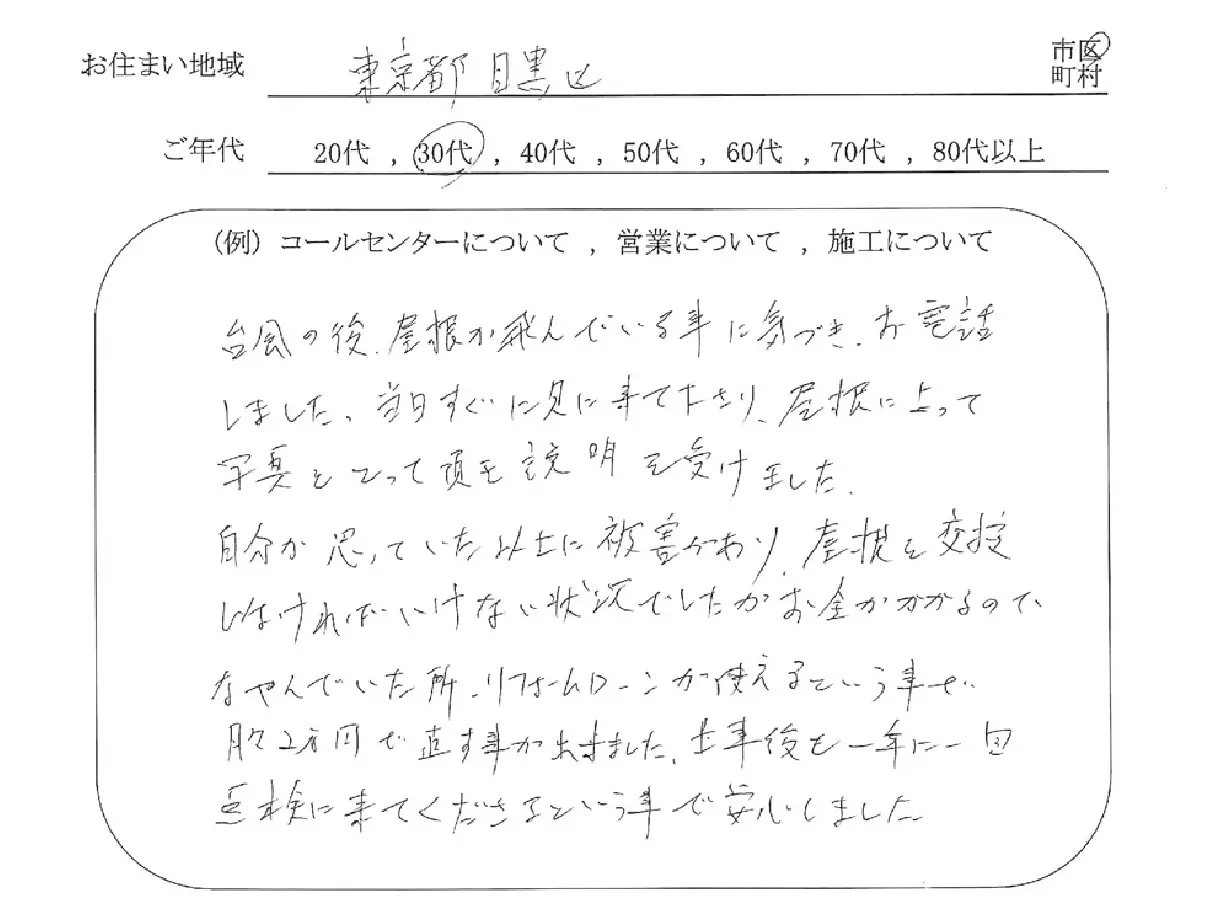 お住まい地域 東京都目黒区 市区
町村
ご年代 20代 , 30代 , 40代 , 50代 , 60代 , 70代 , 80代以上
(例) コールセンターについて , 営業について , 施工について
台風の後、屋根が飛んでいる事に気づき、お電話
しました。当日すぐに見に来て下さり、屋根に上って
写真をとって頂き説明を受けました。
自分が思っていた以上に被害があり、屋根を交換
しなければいけない状況でしたがお金がかかるので、
なやんでいた所、リフォームローンが使えるという事で
月々2万円で直す事が出来ました。工事後も一年に一回
点検に来てくださるという事で安心しました